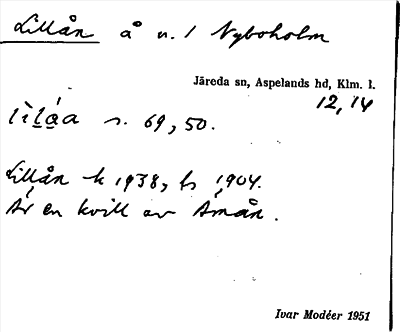 Lillån å n. l Nyboholm
Järeda sn, Aspelands hd, Klm. l.
12, 14
s. 69, 50.
Lillån k 1938, ts 1904.
Är en kvill av Åmån.
Ivar Modéer 1951